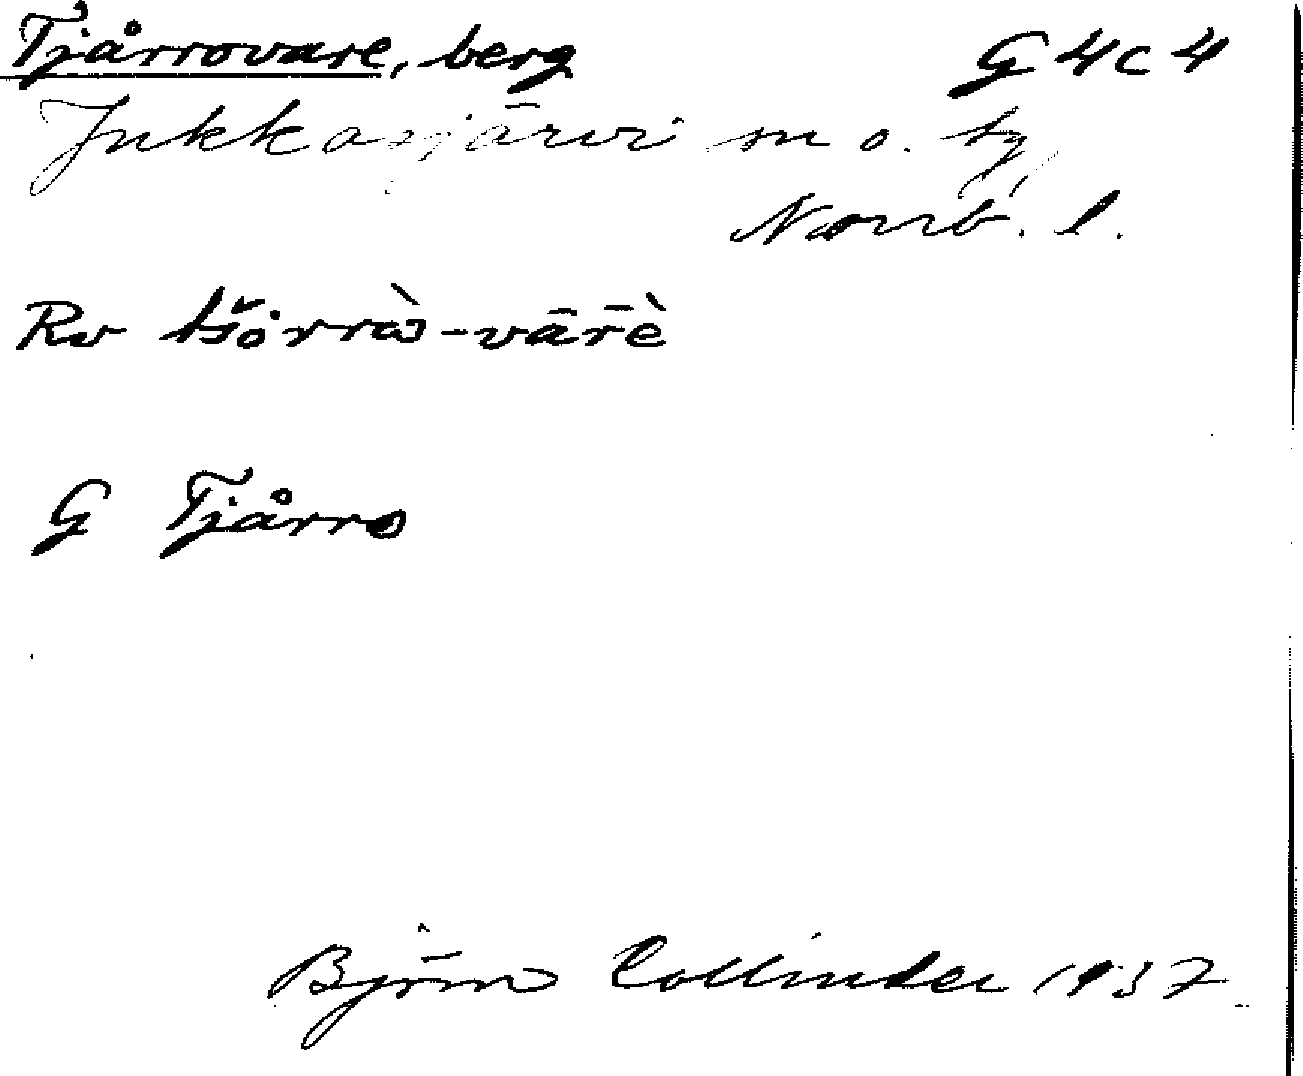 Tjårrovare, berg G 4 c 4
Jukkasjärvi sn o. tg,
Norrb. l.
Rv tšårrὼ-vārè
G Tjårro
Björn Collinder 1937